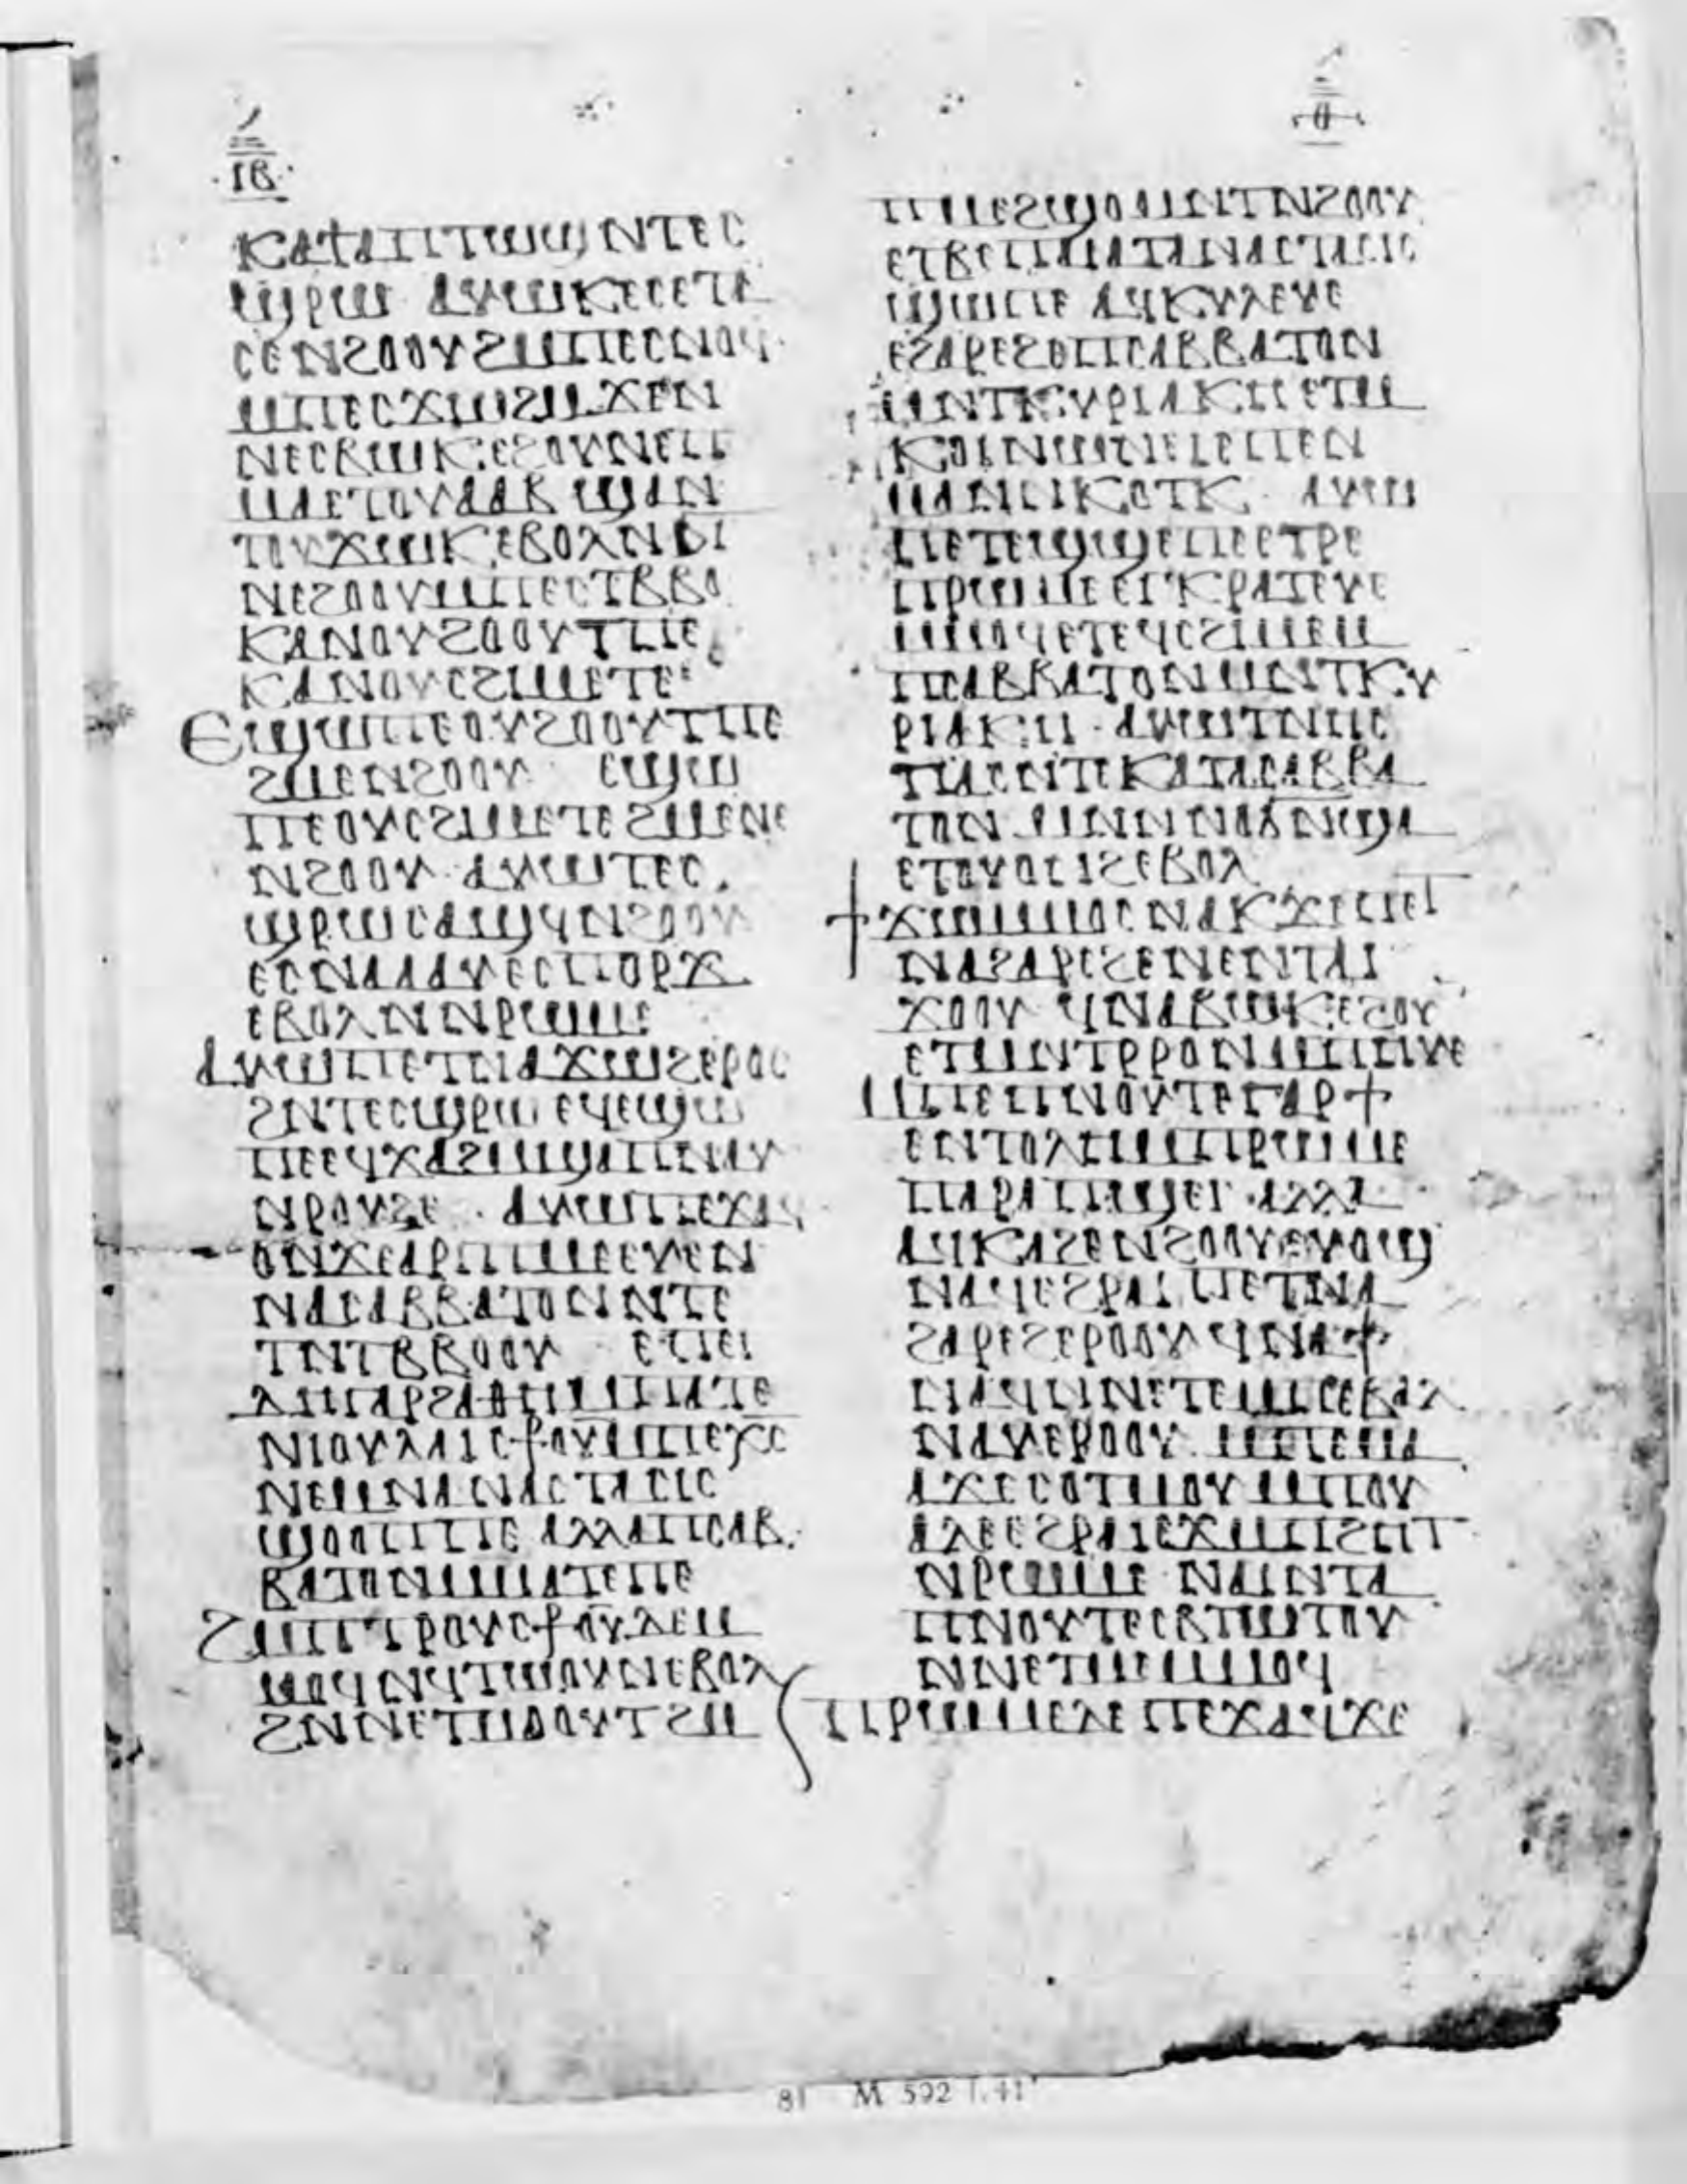 ⲓⲃ
ⲑ
ⲕⲁⲧⲁⲡⲓⲧⲱϣ ⲛⲧⲉⲥ
ϣⲣⲱ ⲁⲩⲱ ⲕⲉⲥⲉⲧⲏ
ⲥⲉⲛϩⲟⲟⲩ ϩⲙⲡⲉⲥⲛⲟϥ
ⲙⲡⲉⲥϫⲱϩⲙ ϫⲉⲛ
ⲛⲉⲥⲃⲱⲕ ⲉϩⲟⲩⲛ ⲉⲡ
ⲙⲁ ⲉⲧⲟⲩⲁⲁⲃ ϣⲁⲛ
ⲧⲟⲩϫⲱⲕ ⲉⲃⲟⲗ ⲛϭⲓ
ⲛⲉϩⲟⲟⲩ ⲙⲡⲉⲥⲧⲃⲃⲟ
ⲕⲁⲛ ⲟⲩϩⲟⲟⲩⲧ ⲡⲉ
ⲕⲁⲛ ⲟⲩⲥϩⲓⲙⲉ ⲧⲉ
ⲉϣⲱⲡⲉ ⲟⲩϩⲟⲟⲩⲧ ⲡⲉ
ϩⲙⲉ ⲛϩⲟⲟⲩ ⲉϣⲱ
ⲡⲉ ⲟⲩⲥϩⲓⲙⲉ ⲧⲉ ϩⲙⲉⲛⲉ
ⲛϩⲟⲟⲩ ⲁⲩⲱ ⲧⲉⲥ
ϣⲣⲱ ⲥⲁϣϥ ⲛϩⲟⲟⲩ
ⲉⲥⲛⲁⲁⲁⲩ ⲉⲥⲡⲟⲣϫ
ⲉⲃⲟⲗ ⲛⲛⲣⲱⲙⲉ
ⲁⲩⲱ ⲡⲉⲧⲛⲁϫⲱϩ ⲉⲣⲟⲥ
ϩⲛⲧⲉⲥϣⲣⲱ ⲉϥⲉϣⲱ
ⲡⲉ ⲉϥϫⲁϩⲙ ϣⲁⲡⲛⲁⲩ
ⲛⲣⲟⲩϩⲉ ⲁⲩⲱ ⲡⲉϫⲁϥ
ⲟⲛ ϫⲉ ⲁⲣⲓⲡⲙⲉⲉⲩⲉ ⲛ
ⲛⲁⲥⲁⲃⲃⲁⲧⲟⲛ ⲛⲧⲉ
ⲧⲛⲧⲃⲃⲟⲟⲩ ⲉⲡⲉⲓ
ⲇⲏ ⲅⲁⲣ ϩⲁⲑⲏ ⲙⲡⲁⲧⲉ
ⲛⲓⲟⲩⲇⲁⲓ ⲥϯⲟⲩ ⲙⲡⲉⲭⲥ
ⲛⲉⲙⲛ ⲁⲛⲁⲥⲧⲁⲥⲓⲥ
ϣⲟⲟⲡ ⲡⲉ ⲁⲗⲗⲁ ⲡⲥⲁⲃ
ⲃⲁⲧⲟⲛ ⲙⲙⲁⲧⲉ ⲡⲉ
ϩⲙⲡⲧⲣⲟⲩⲥϯⲟⲩ ⲇⲉ ⲙ
ⲙⲟϥ ⲛϥⲧⲱⲟⲩⲛ ⲉⲃⲟⲗ
ϩⲛⲛⲉⲧⲙⲟⲟⲩⲧ ϩⲙ
ⲡⲙⲉϩϣⲟⲙⲛⲧ ⲛϩⲟⲟⲩ
ⲉⲧⲃⲉ ⲡⲁⲓ ⲁⲧⲁⲛⲁⲥⲧⲁⲥⲓⲥ
ϣⲱⲡⲉ ⲁϥⲕⲩⲗⲉⲩⲉ
ⲉϩⲁⲣⲉϩ ⲉⲡⲥⲁⲃⲃⲁⲧⲟⲛ
ⲙⲛⲧⲕⲩⲣⲓⲁⲕⲏ ⲉⲧⲙ
ⲕⲟⲓⲛⲱⲛⲉⲓ ⲉⲡⲉⲛ
ⲙⲁ ⲛⲛⲕⲟⲧⲕ ⲁⲩⲱ
ⲡⲉⲧⲉϣϣⲉ ⲡⲉ ⲉⲧⲣⲉ
ⲡⲣⲱⲙⲉ ⲉⲅⲕⲣⲁⲧⲉⲩⲉ
ⲙⲙⲟϥ ⲉⲧⲉϥⲥϩⲓⲙⲉ ⲙ
ⲡⲥⲁⲃⲃⲁⲧⲟⲛ ⲙⲛⲧⲕⲩ
ⲣⲓⲁⲕⲏ ⲁⲩⲱ ⲧⲛⲏⲥ
ⲧⲓⲁ ⲥⲛⲧⲉ ⲕⲁⲧⲁ ⲥⲁⲃⲃⲁ
ⲧⲟⲛ ⲙⲛ ⲛⲛⲟϭ ⲛϣⲁ
ⲉⲧⲟⲩⲟⲛϩ ⲉⲃⲟⲗ
ϯϫⲱ ⲙⲙⲟⲥ ⲛⲁⲕ ϫⲉ ⲡⲉⲧ
ⲛⲁϩⲁⲣⲉϩ ⲉⲛⲉⲛⲧⲁⲓ
ϫⲟⲟⲩ ϥⲛⲁⲃⲱⲕ ⲉϩⲟⲩ
ⲉⲧⲙⲛⲧⲣⲣⲟ ⲛⲙⲡⲏⲩⲉ
ⲙⲡⲉ ⲡⲛⲟⲩⲧⲉ ⲅⲁⲣ ϯ
ⲉⲛⲧⲟⲗⲏ ⲙⲡⲣⲱⲙⲉ
ⲡⲁⲣⲁ ⲡϣⲓ ⲁⲗⲗⲁ
ⲁϥⲕⲁϩⲉⲛϩⲟⲟⲩ ⲉⲩⲟϣ
ⲛⲁϥ ⲉϩⲣⲁⲓ ⲡⲉⲧⲛⲁ
ϩⲁⲣⲉϩ ⲉⲣⲟⲟⲩ ϥⲛⲁϯ
ⲛⲁϥ ⲛⲛⲉⲧⲉⲙⲡⲉ ⲃⲁⲗ
ⲛⲁⲩ ⲉⲣⲟⲟⲩ ⲙⲡⲉⲙⲁ
ⲁϫⲉ ⲥⲟⲧⲙⲟⲩ ⲙⲡⲟⲩ
ⲁⲗⲉ ⲉϩⲣⲁⲓ ⲉϫⲙⲡϩⲏⲧ
ⲛⲣⲱⲙⲉ ⲛⲁⲓ ⲛⲧⲁ
ⲡⲛⲟⲩⲧⲉ ⲥⲃⲧⲱⲧⲟⲩ
ⲛⲛⲉⲧⲙⲉ ⲙⲙⲟϥ
ⲡⲣⲱⲙⲉ ⲇⲉ ⲡⲉϫⲁϥ ϫⲉ
81 M 592 f. 41